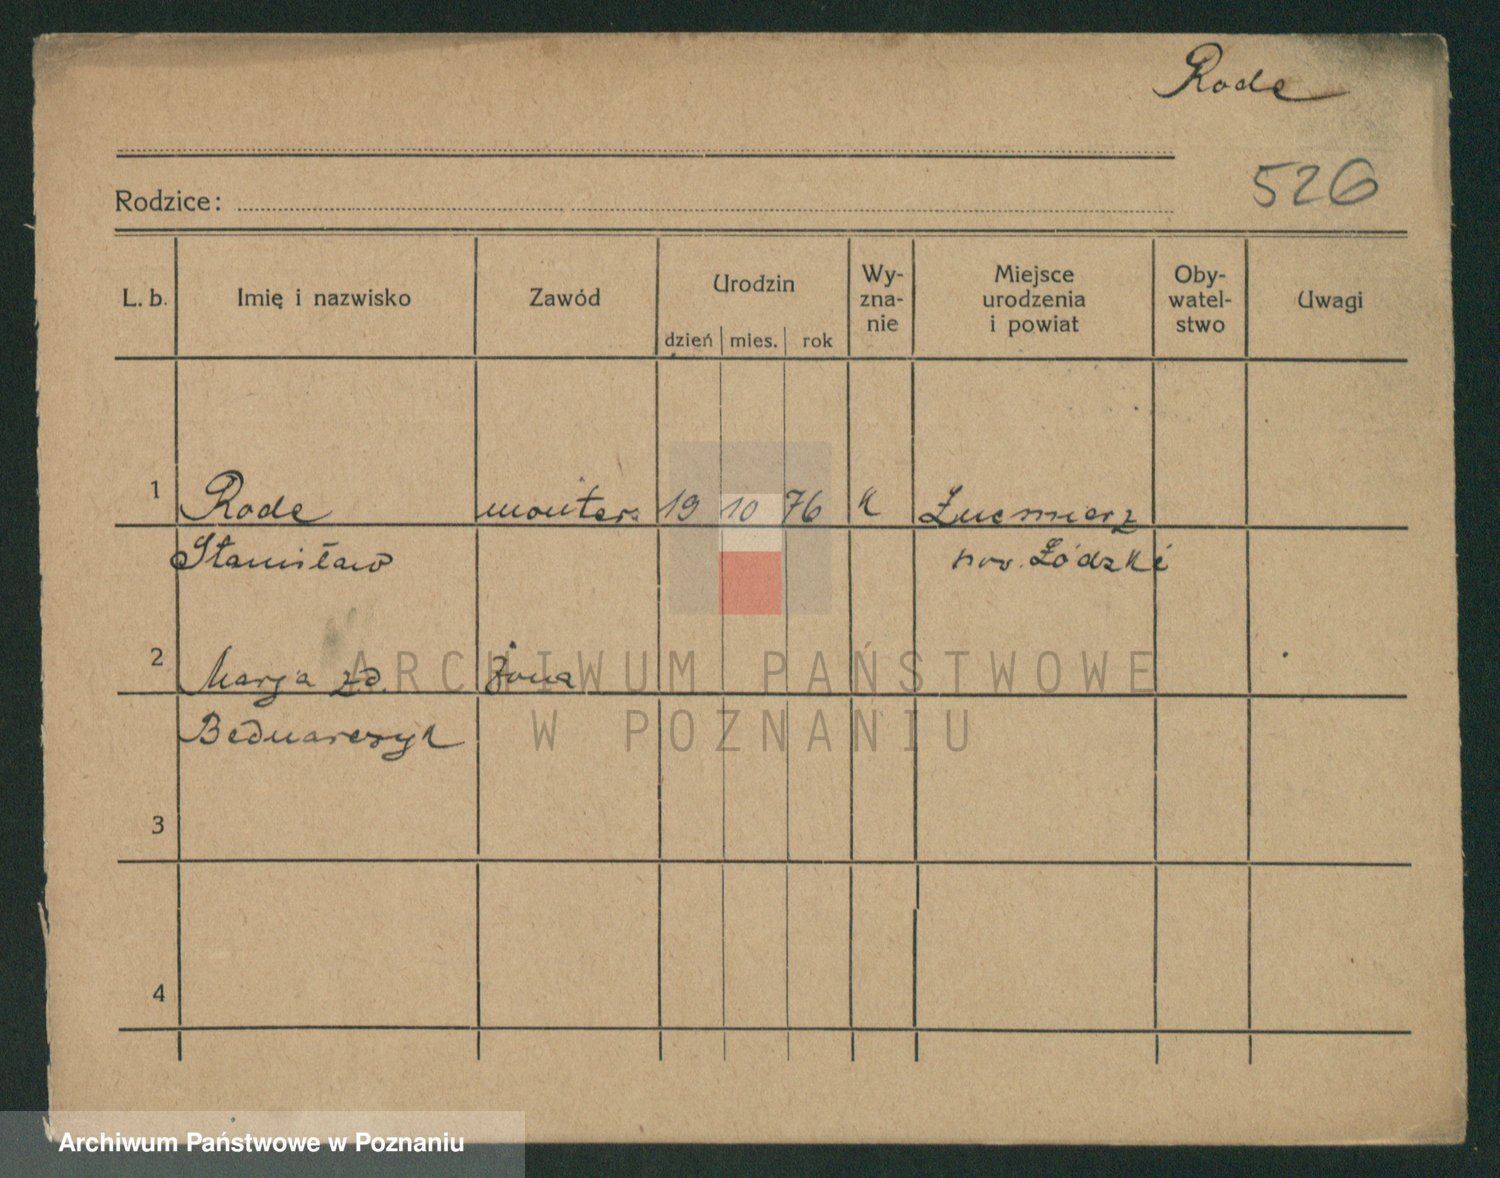 Rode
526
Rodzice:
L. b. Imię i nazwisko Zawód Urodzin dzień mies. rok Wy-zna-nie Miejsce urodzenia i powiat Oby-watel-stwo Uwagi
1 Rode monter 19 10 76 k Lućmierz
Stanisław pow. Łódzki
2 Marja zd. żona
Bednarczyk
3
4
ARCHIWUM PAŃSTWOWE
W POZNANIU
Archiwum Państwowe w Poznaniu